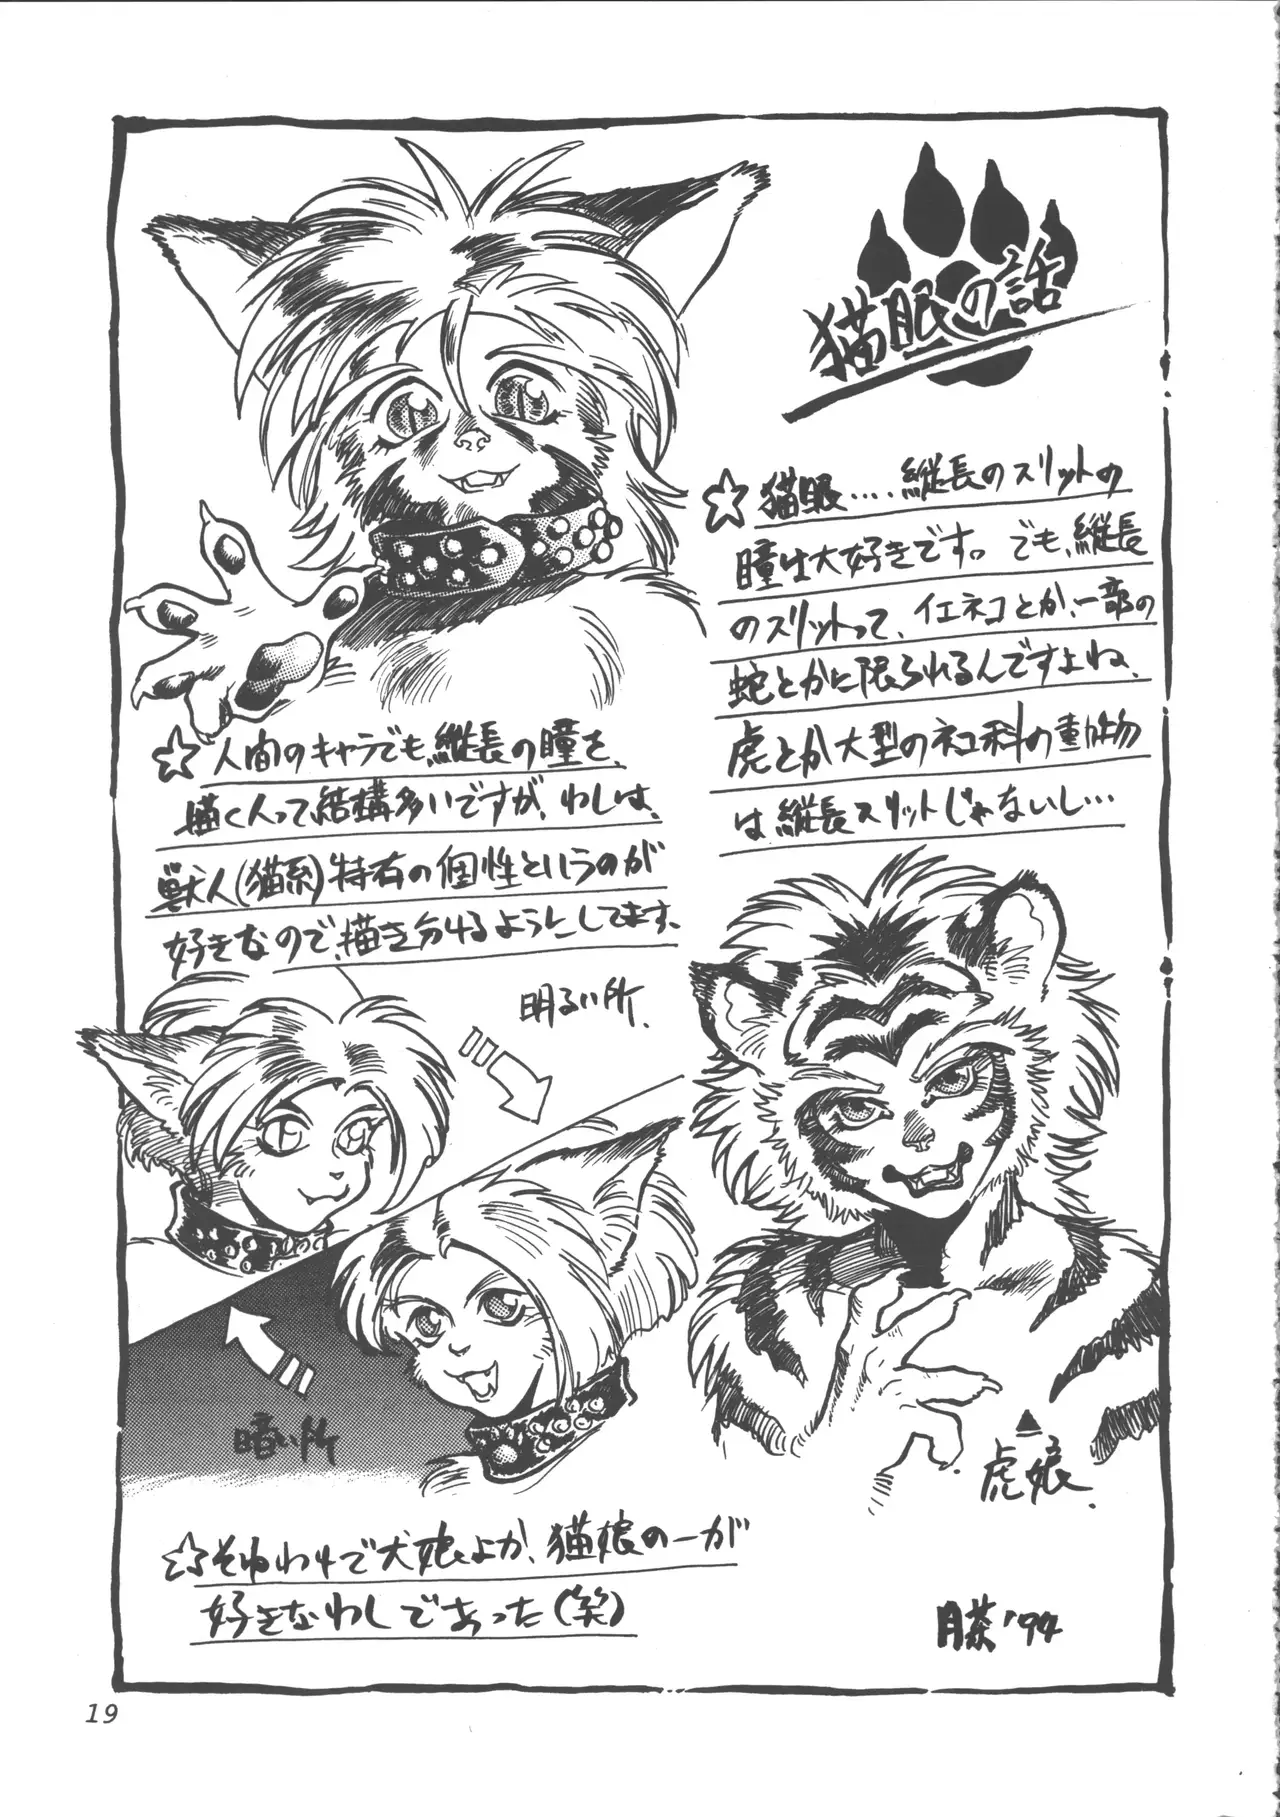 猫眼の話
☆猫眼‥‥縦長のスリットの
瞳は大好きです。でも、縦長
のスリットって、イエネコとか、一部の
蛇とかに限られるんですよね、
虎とか大型のネコ科の動物
は縦長スリットじゃないし…
☆人間のキャラでも、縦長の瞳を、
描く人って結構多いですが、わしは、
獣人(猫系)特有の個性というのが
好きなので、描き分けるようにしてます。
明るい所.
暗い所
▲
虎娘.
☆そゆわけで犬娘よか、猫娘の一が
好きなわしであった(笑)
'94
19